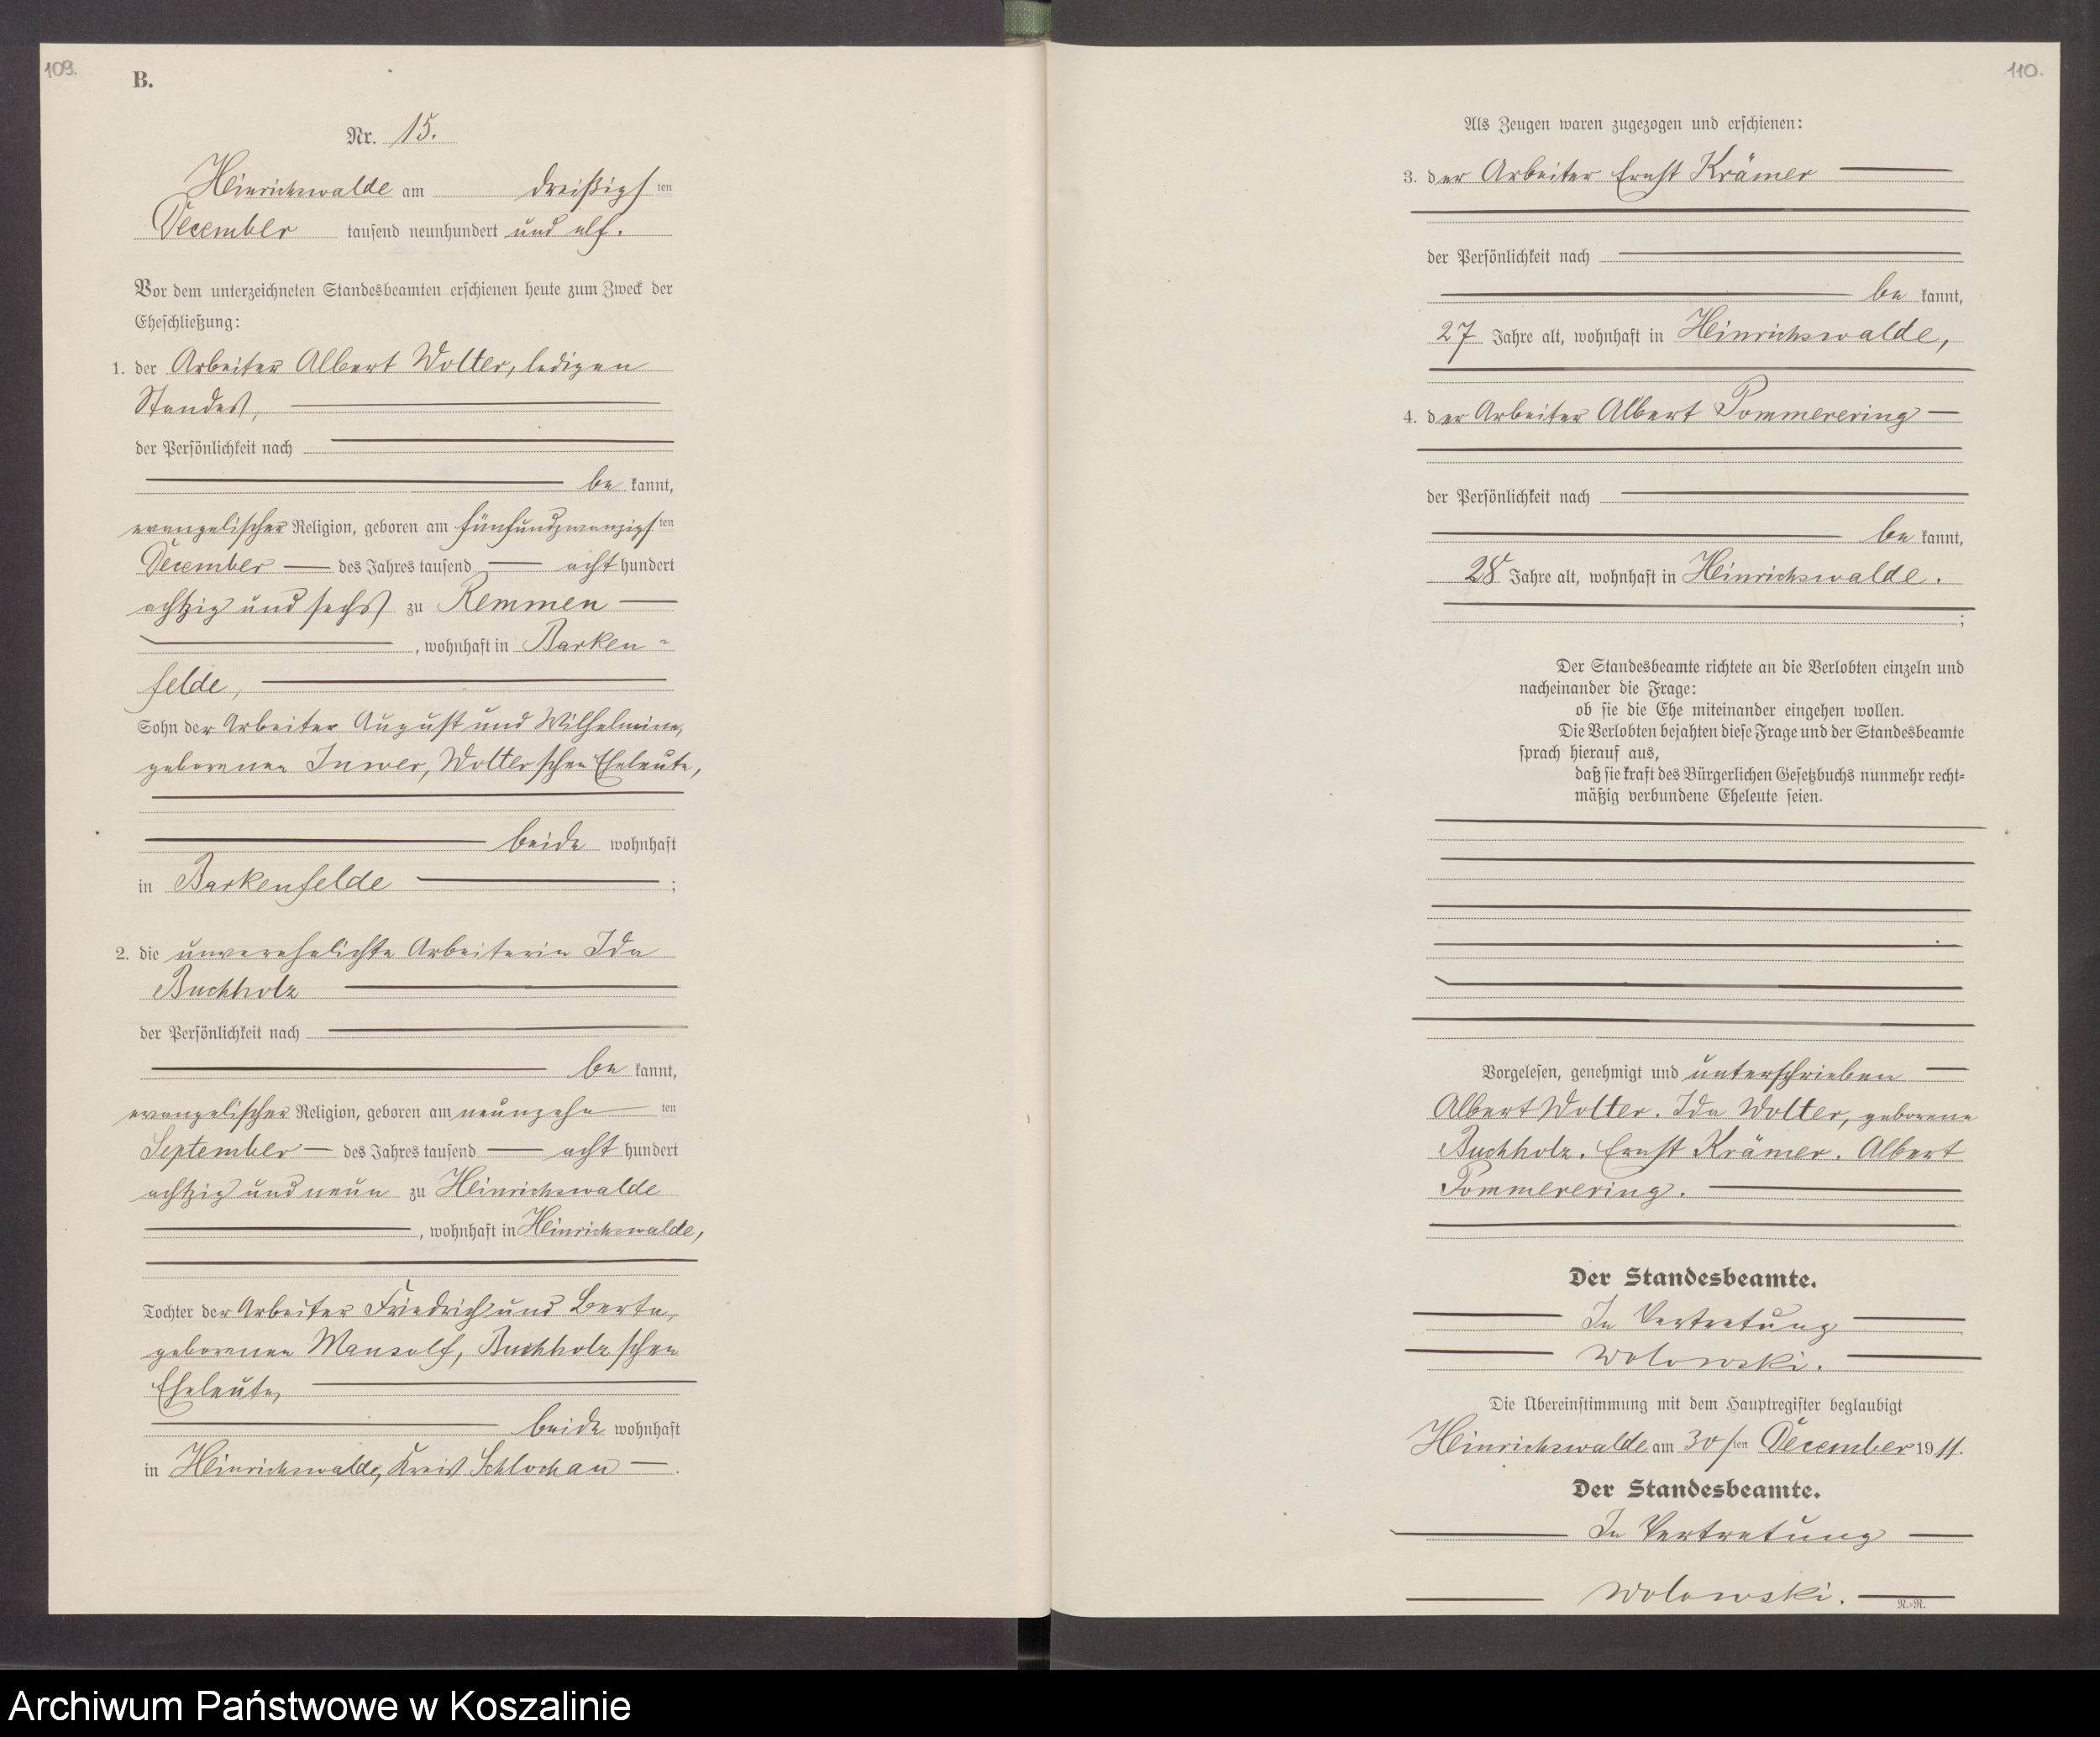 109.
B.
Nr. 15.
Heinrichswalde am dreißigsten
December tausend neunhundert und elf.
Vor dem unterzeichneten Standesbeamten erschienen heute zum Zweck der
Eheschließung:
1. der Arbeiter Albert Wolter, ledigen
Standes,
der Persönlichkeit nach
be kannt,
evangelischer Religion, geboren am fünfundzwanzigsten
December des Jahres tausend acht hundert
achtzig und sechs zu Remmen
, wohnhaft in Barken=
felde,
Sohn der Arbeiter August und Wilhelmine,
geborenen Inwer, Wolter'schen Eheleute,
beide wohnhaft
in Barkenfelde ;
2. die unverehelichte Arbeiterin Ida
Buchholz
der Persönlichkeit nach
be kannt,
evangelischer Religion, geboren am neunzehn ten
September des Jahres tausend acht hundert
achtzig und neun zu Heinrichswalde
, wohnhaft in Heinrichswalde,
Tochter der Arbeiter Friedrich und Berta,
geborenen Mansolf, Buchholz'schen
Eheleute,
beide wohnhaft
in Heinrichswalde, Kreis Schlochau .
110.
Als Zeugen waren zugezogen und erschienen:
3. der Arbeiter Ernst Krämer
der Persönlichkeit nach
be kannt,
27 Jahre alt, wohnhaft in Heinrichswalde,
4. der Arbeiter Albert Pommerering
der Persönlichkeit nach
be kannt,
28 Jahre alt, wohnhaft in Heinrichswalde.
;
Der Standesbeamte richtete an die Verlobten einzeln und
nacheinander die Frage:
ob sie die Ehe miteinander eingehen wollen.
Die Verlobten bejahten diese Frage und der Standesbeamte
sprach hierauf aus,
daß sie kraft des Bürgerlichen Gesetzbuchs nunmehr recht=
mäßig verbundene Eheleute seien.
Vorgelesen, genehmigt und unterschrieben
Albert Wolter. Ida Wolter, geborene
Buchholz. Ernst Krämer. Albert
Pommerering.
Der Standesbeamte.
In Vertretung
Wolowski.
Die Übereinstimmung mit dem Hauptregister beglaubigt
Heinrichswalde am 30sten December 1911.
Der Standesbeamte.
In Vertretung
Wolowski.
N.=R.
Archiwum Państwowe w Koszalinie